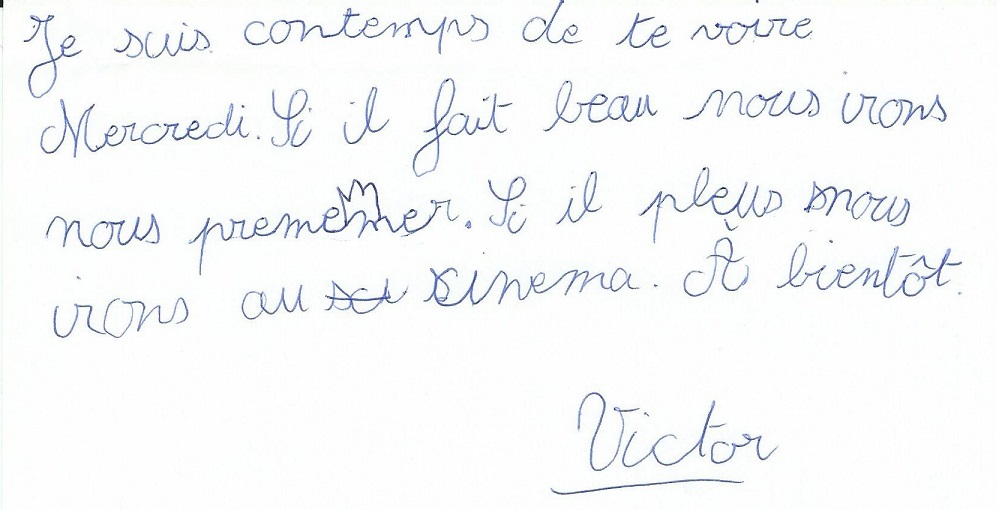 Je suis contemps de te voire
Mercredi. Si il fait beau nous irons
nous premener. Si il pleus nous
irons au sinema. À bientôt.
Victor